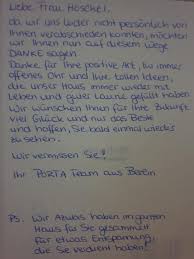 Liebe Frau Hoschel,
da wir uns leider nicht persönlich von
Ihnen verabschieden konnten, möchten
wir Ihnen nun auf diesem Wege
DANKE sagen.
Danke für Ihre positive Art, Ihr immer
offenes Ohr und Ihre tollen Ideen,
die unser Haus immer wieder mit
Leben und guter Laune gefüllt haben.
Wir wünschen Ihnen für Ihre Zukunft
viel Glück und nur das Beste
und hoffen, Sie bald einmal wieder
zu sehen.
Wir vermissen Sie!
Ihr PORTA Team aus
PS. Wir Azubis haben im ganzen
Haus für Sie gesammelt
für etwas Entspannung,
die Sie verdient haben!